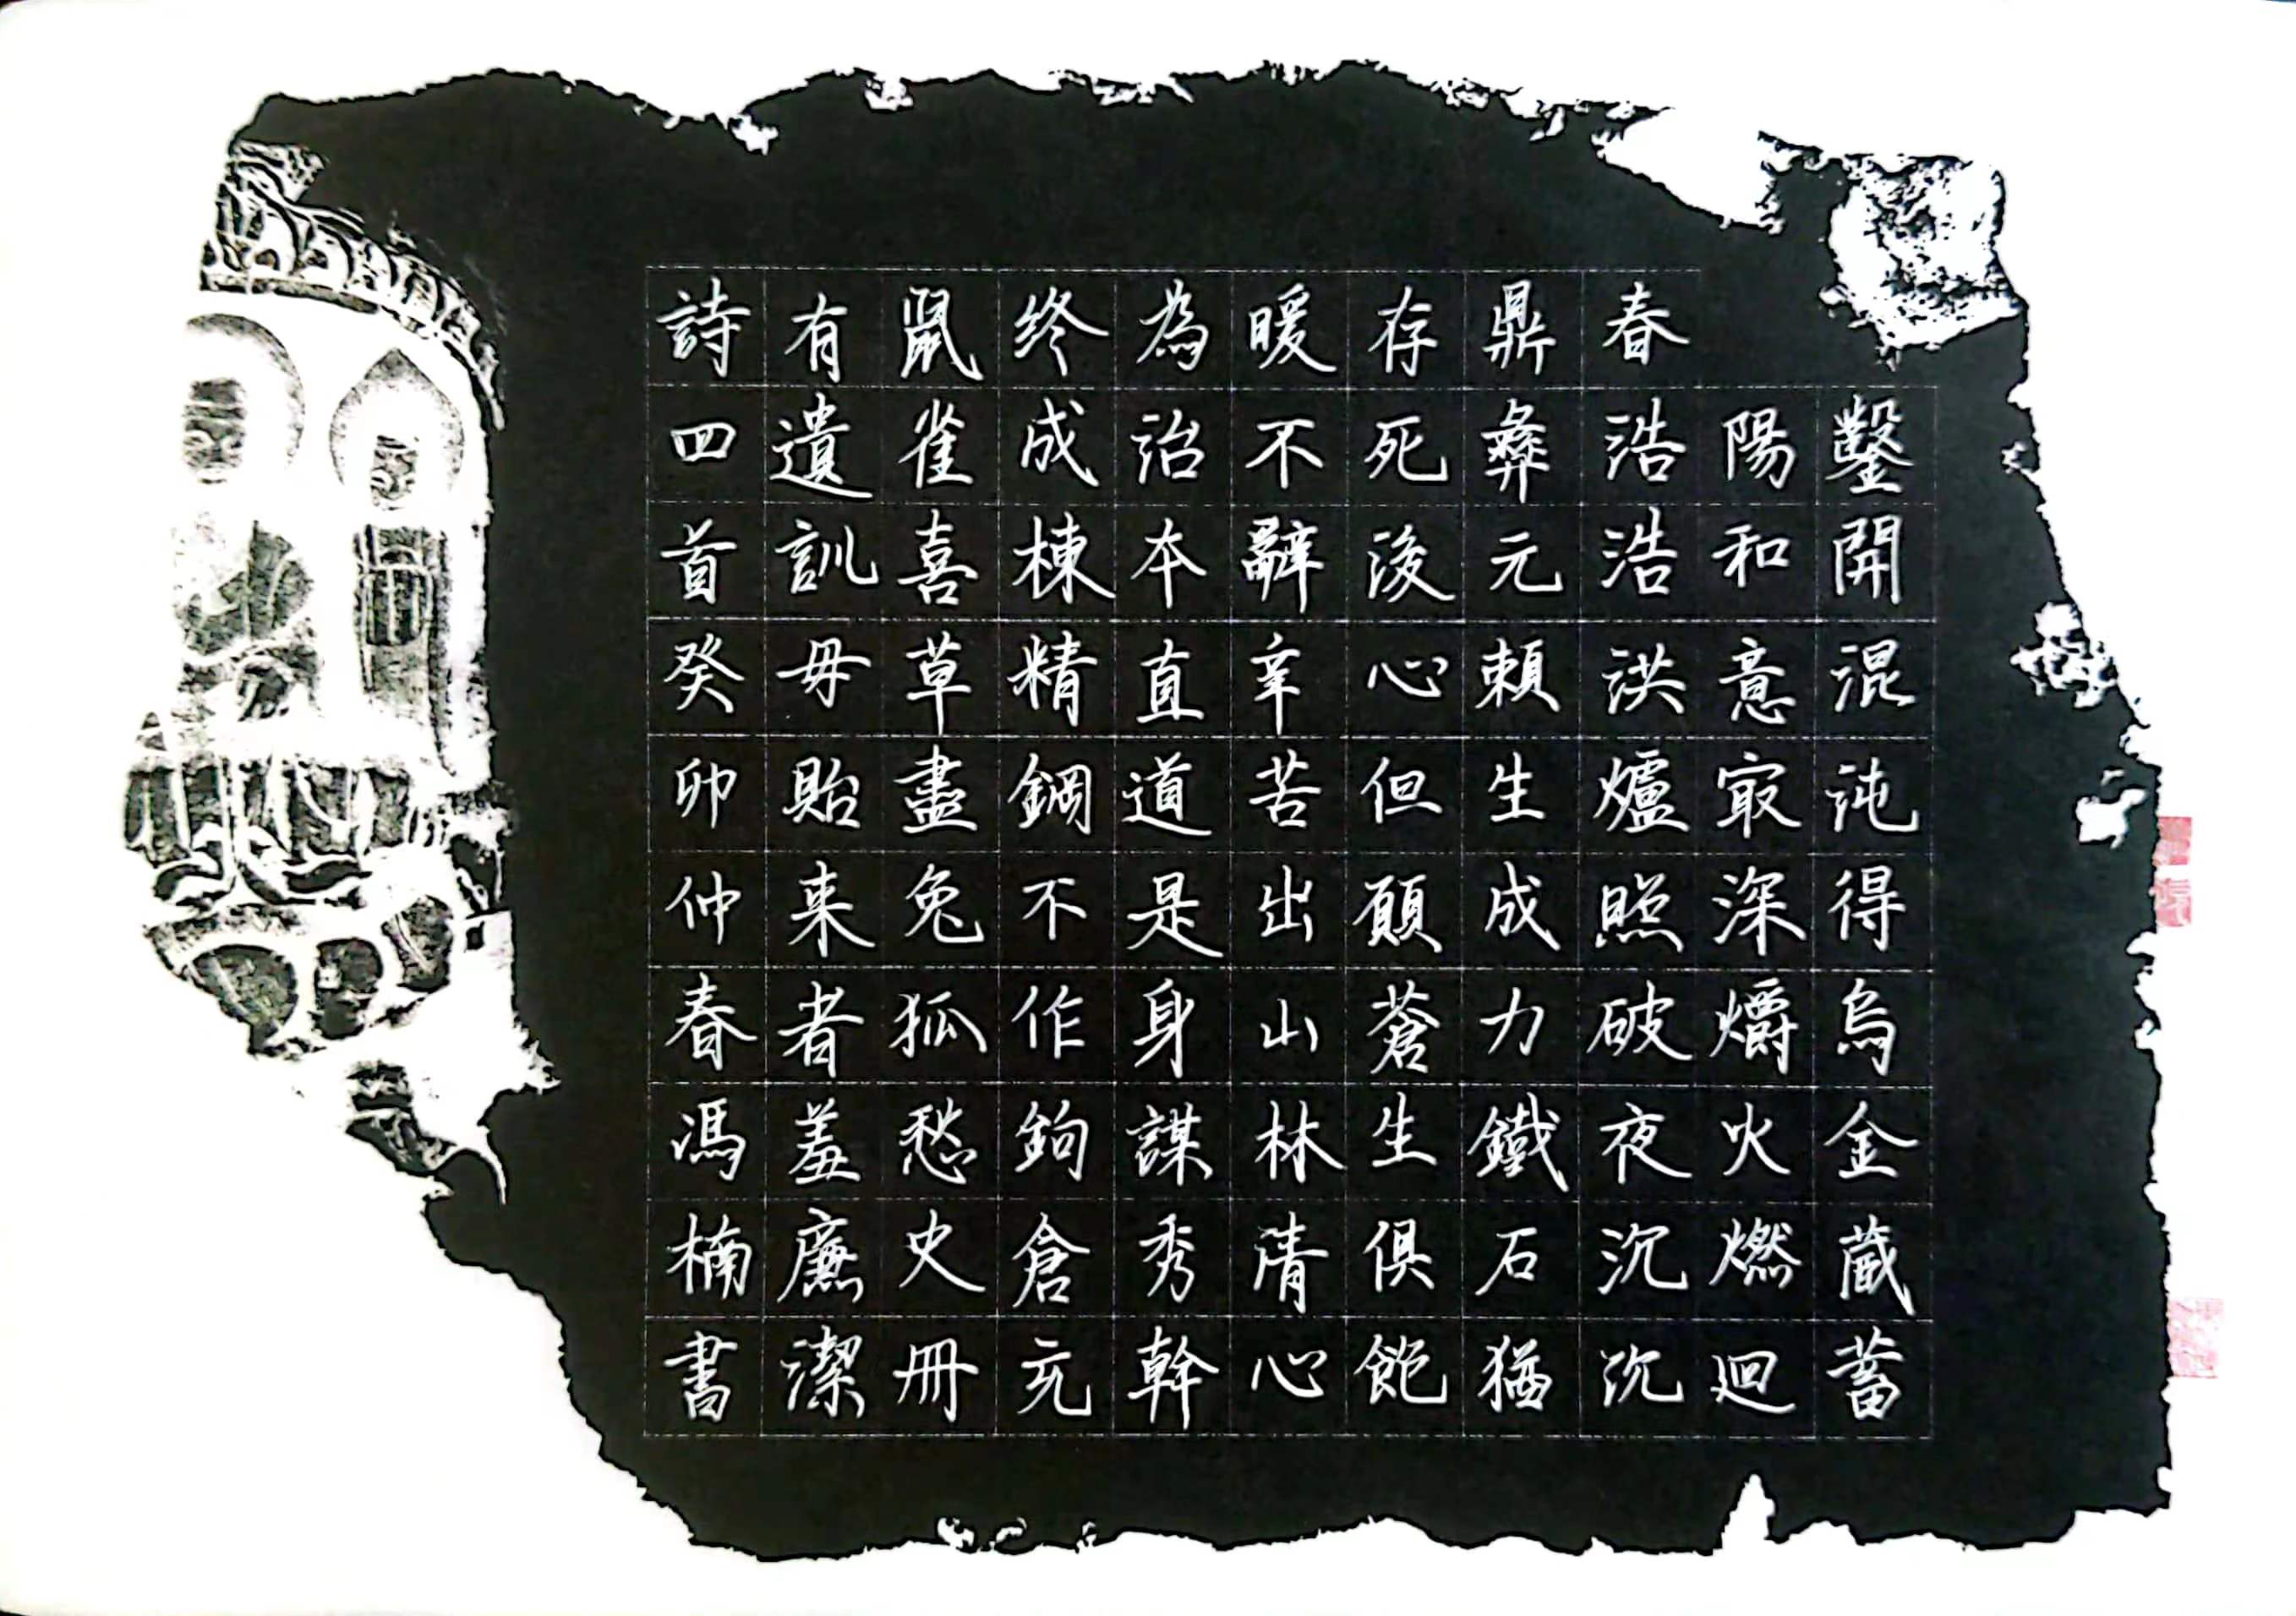 鑿開混沌得烏金藏蓄
陽和意㝡深爝火燃迴
春浩浩洪爐照破夜沉沉
鼎彝元賴生成力鐵石猶
存死後心但願蒼生俱飽
暖不辭辛苦出山林清心
為治本直道是身謀秀幹
终成棟精鋼不作鉤倉充
鼠雀喜草盡兔狐愁史冊
有遺訓毋貽来者羞廉潔
詩四首癸卯仲春馮楠書